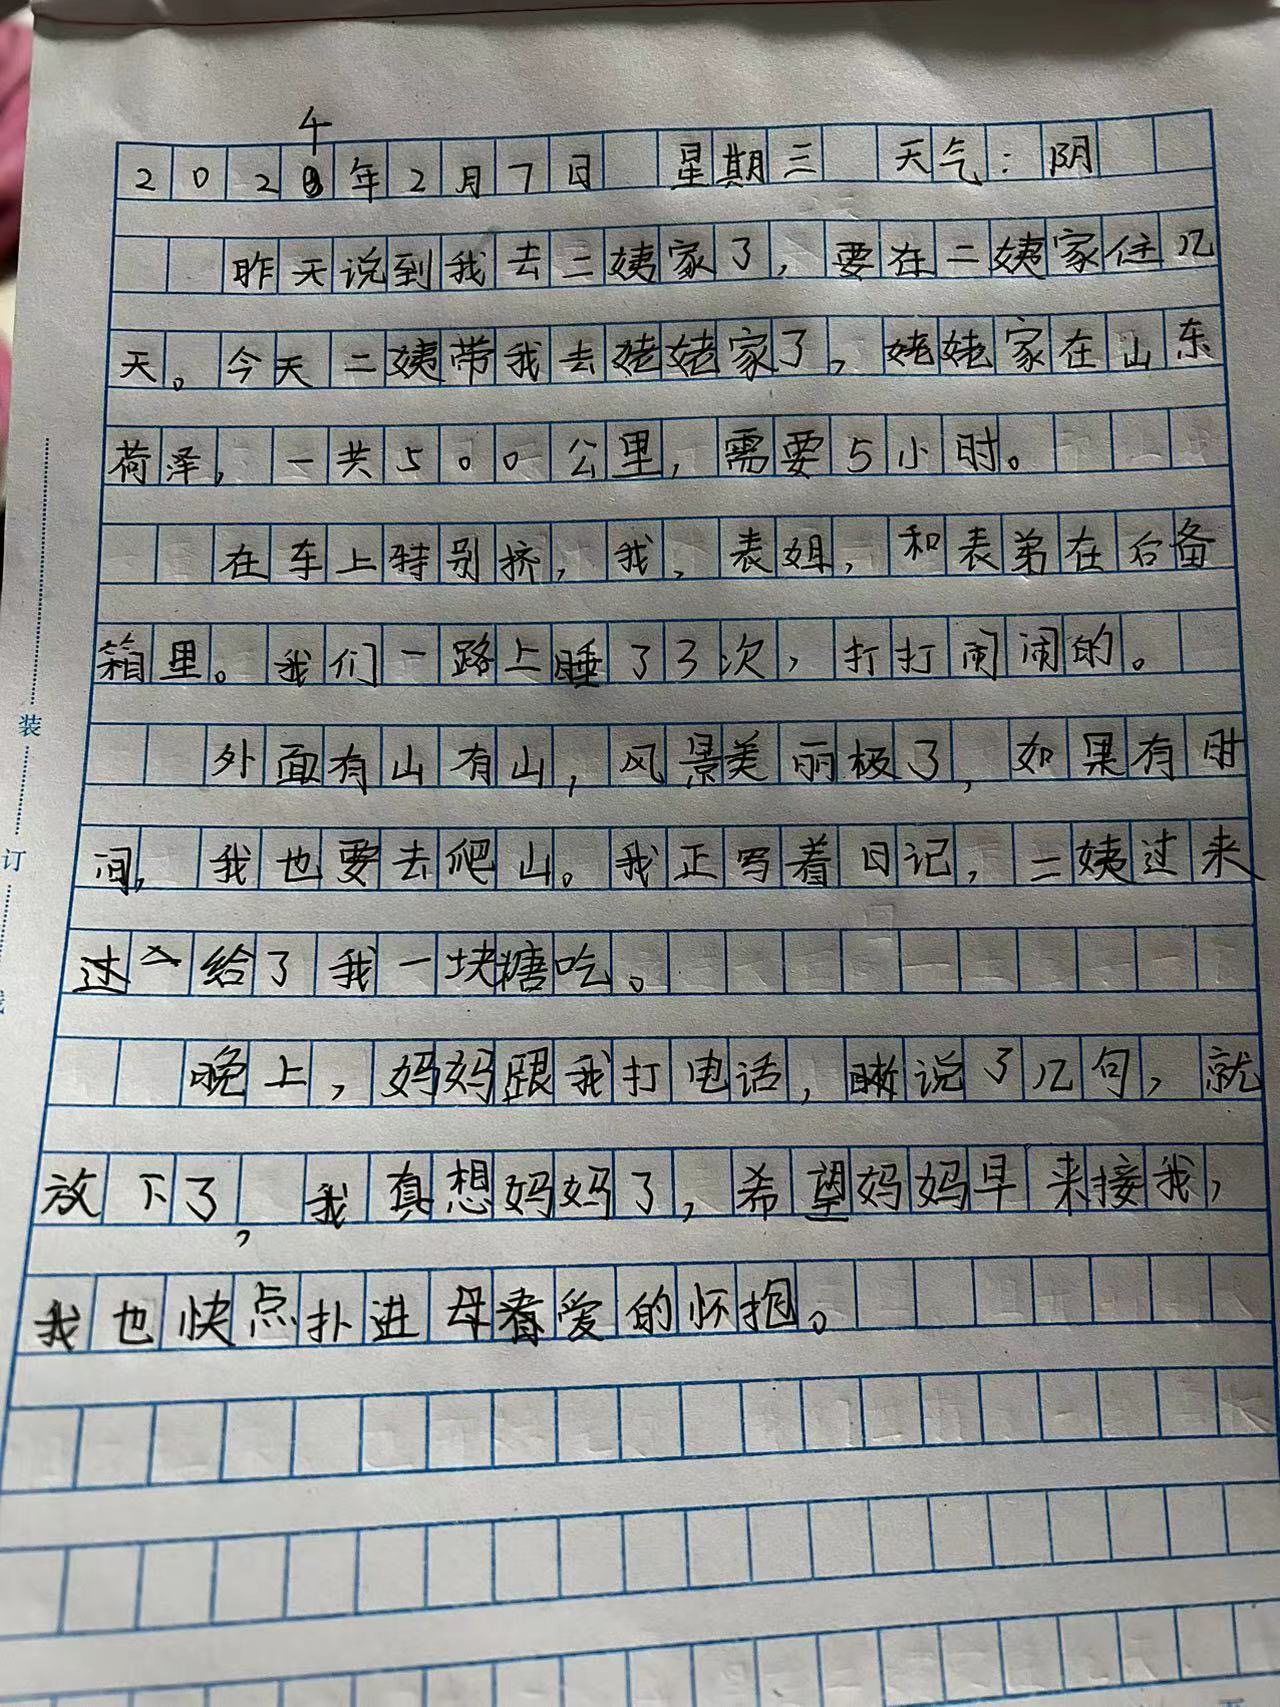 2024年2月7日 星期三 天气：阴
昨天说到我去二姨家了，要在二姨家住几
天。今天二姨带我去姥姥家了，姥姥家在山东
荷泽，一共500公里，需要5小时。
在车上特别挤，我、表姐，和表弟在后备
箱里。我们一路上睡了3次，打打闹闹的。
外面有山有山，风景美丽极了，如果有时
间，我也要去爬山。我正写着日记，二姨过来
过给了我一块糖吃。
晚上，妈妈跟我打电话，说了几句，就
放下了，我真想妈妈了，希望妈妈早来接我，
我也快点扑进母爱的怀抱。
装
订